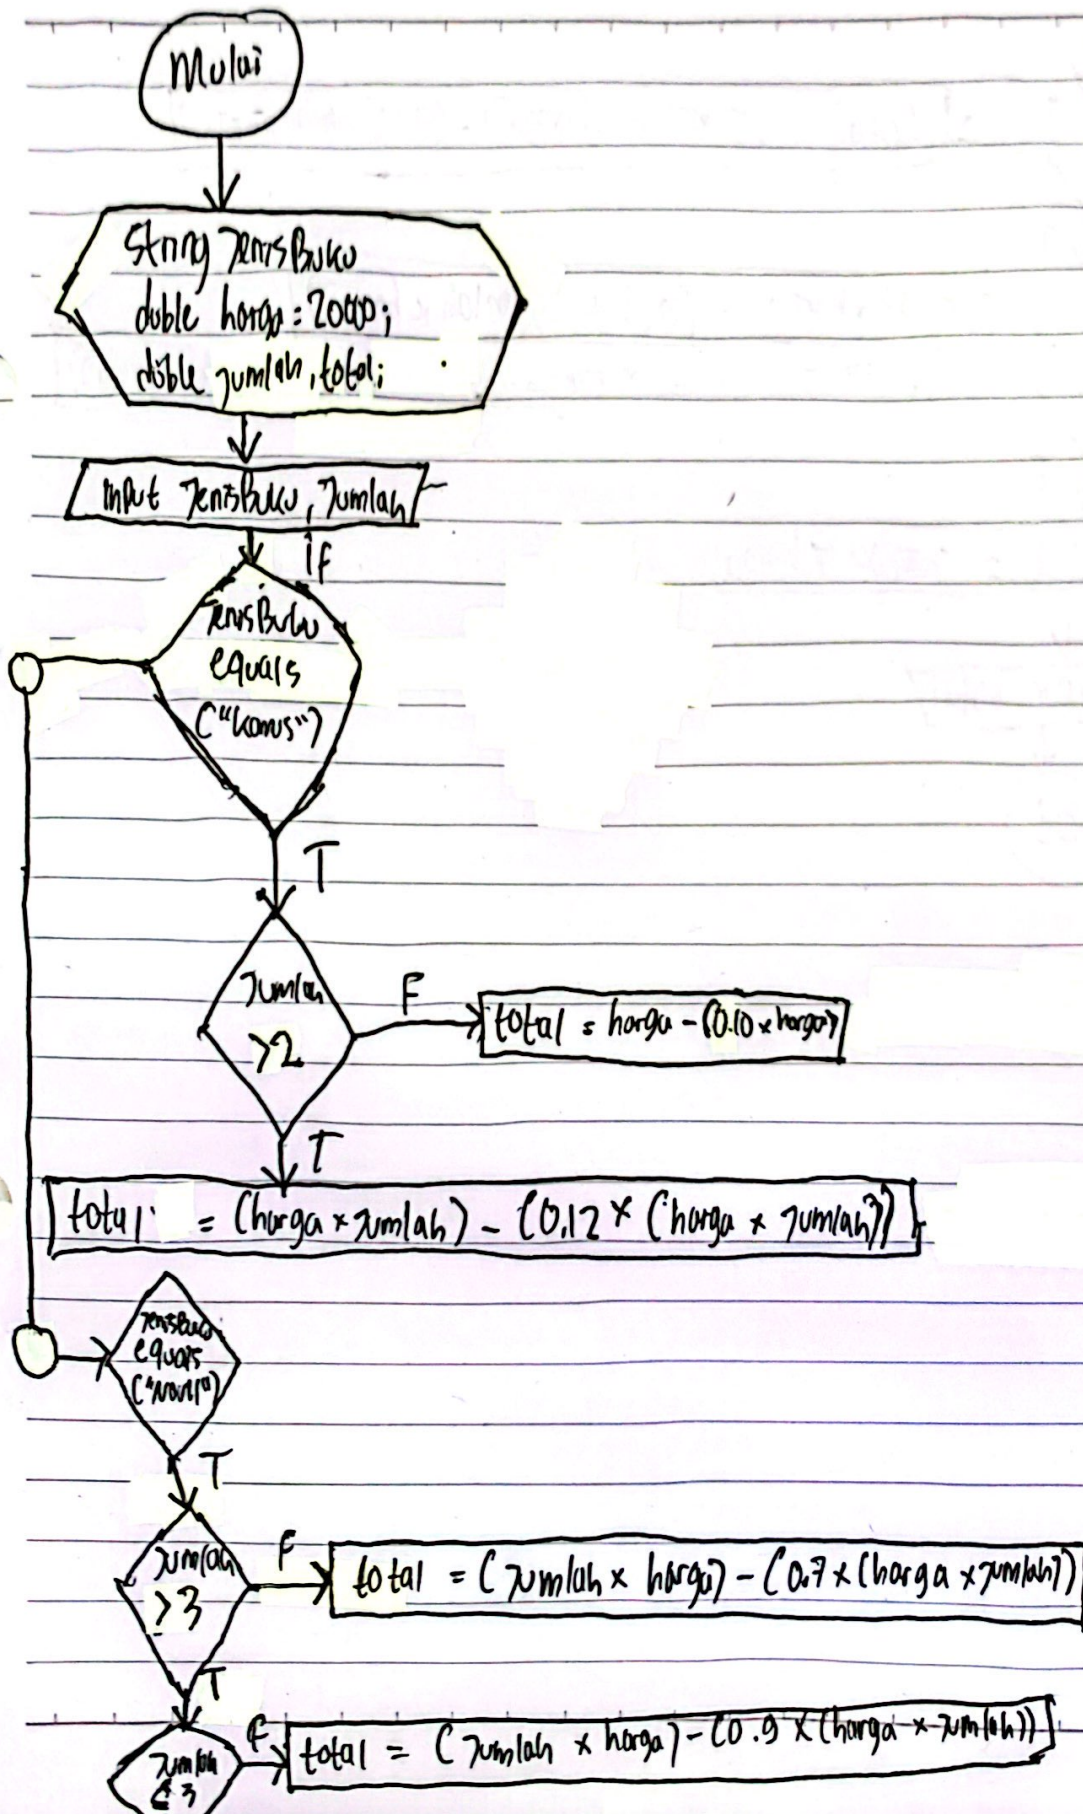 Mulai
String JenisBuku
duble harga = 20000;
duble jumlah, total;
input JenisBuku, Jumlah
if
JenisBuku
equals
("kamus")
T
Jumlah
>2
F
total = harga - (0.10 x harga)
T
total = (harga x jumlah) - (0.12 x (harga x jumlah))
JenisBuku
equals
("Novel")
T
Jumlah
>3
F
total = (Jumlah x harga) - (0.7 x (harga x jumlah))
T
Jumlah
≤ 3
F
total = (Jumlah x harga) - (0.9 x (harga x jumlah))